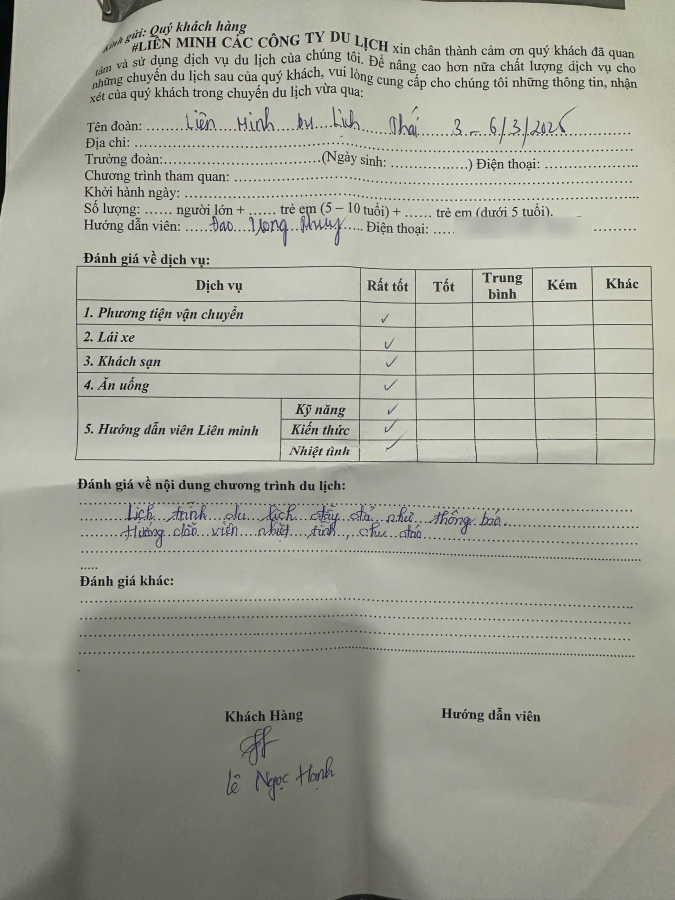 Kính gửi: Quý khách hàng
#LIÊN MINH CÁC CÔNG TY DU LỊCH xin chân thành cảm ơn quý khách đã quan
tâm và sử dụng dịch vụ du lịch của chúng tôi. Để nâng cao hơn nữa chất lượng dịch vụ cho
những chuyến du lịch sau của quý khách, vui lòng cung cấp cho chúng tôi những thông tin, nhận
xét của quý khách trong chuyến du lịch vừa qua:
Tên đoàn: Liên Minh Du Lịch Thái 3 - 6/3/2025
Địa chỉ:
Trưởng đoàn: (Ngày sinh: ) Điện thoại:
Chương trình tham quan:
Khởi hành ngày:
Số lượng: ...... người lớn + ...... trẻ em (5 – 10 tuổi) + ...... trẻ em (dưới 5 tuổi).
Hướng dẫn viên: Đao Trong Điện thoại:
Đánh giá về dịch vụ:
Dịch vụ Rất tốt Tốt Trung bình Kém Khác
1. Phương tiện vận chuyển ✓
2. Lái xe ✓
3. Khách sạn ✓
4. Ăn uống ✓
5. Hướng dẫn viên Liên minh Kỹ năng ✓
Kiến thức ✓
Nhiệt tình ✓
Đánh giá về nội dung chương trình du lịch:
Lịch trình du lịch đầy đủ như thông báo.
Hướng dẫn viên nhiệt tình, chu đáo
Đánh giá khác:
Khách Hàng Hướng dẫn viên
Lê Ngọc Hạnh